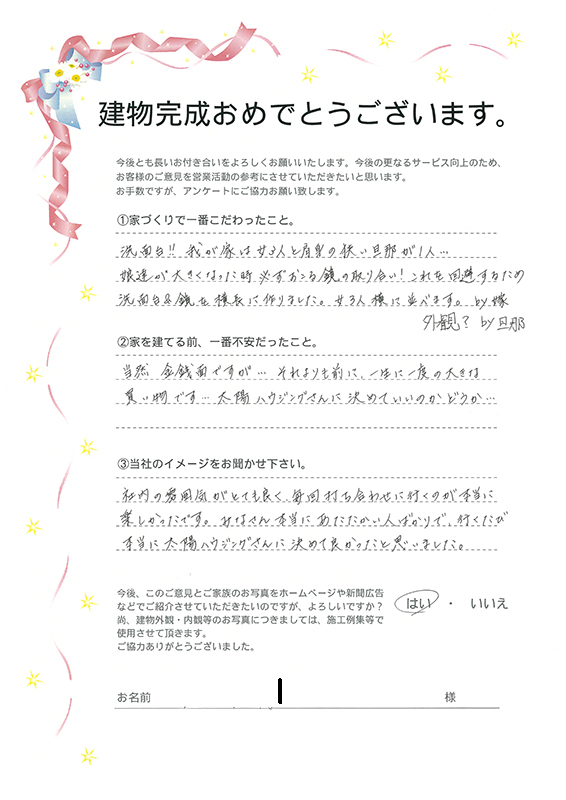 建物完成おめでとうございます。
今後とも長いお付き合いをよろしくお願いいたします。今後の更なるサービス向上のため、
お客様のご意見を営業活動の参考にさせていただきたいと思います。
お手数ですが、アンケートにご協力お願い致します。
①家づくりで一番こだわったこと。
洗面台!! 我が家は女3人と肩身の狭い旦那が1人…
娘達が大きくなった時必ずおこる鏡の取り合い!これを回避するため
洗面台&鏡を横長に作りました。女3人横に並べます。by嫁
外観? by旦那
②家を建てる前、一番不安だったこと。
当然 金銭面ですが… それよりも前に、一生に一度の大きな
買い物です… 太陽ハウジングさんに決めていいのかどうか…
③当社のイメージをお聞かせ下さい。
社内の雰囲気がとても良く、毎回打ち合わせに行くのが本当に
楽しかったです。みなさん本当にあたたかい人ばかりで、行くたび
本当に太陽ハウジングさんに決めて良かったと思いました。
今後、このご意見とご家族のお写真をホームページや新聞広告
などでご紹介させていただきたいのですが、よろしいですか?
はい ・ いいえ
尚、建物外観・内観等のお写真につきましては、施工例集等で
使用させて頂きます。
ご協力ありがとうございました。
お名前 様